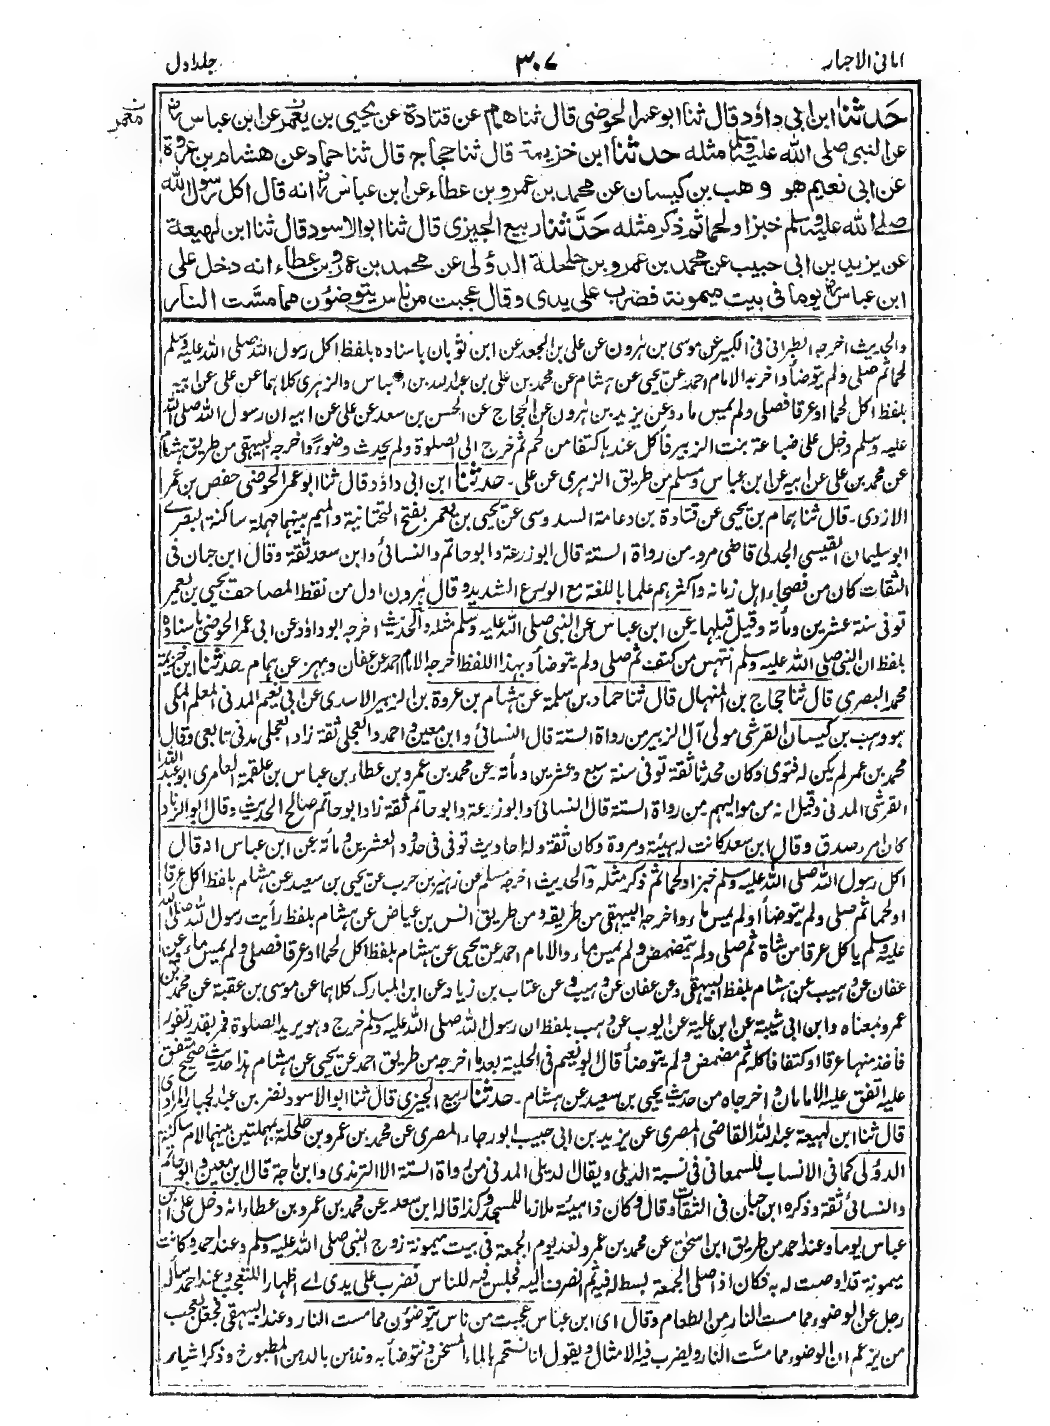 امانی الاحبار
۳۰۷
جلد اول
حَدثنا ابن ابی داؤد قال ثنا ابو عمر الحوضی قال ثنا همام عن قتادة عن یحیی بن یعمر عن ابن عباس رض
یعمر
عن النبی صلی الله علیه وسلم مثله حدثنا ابن خزیمة قال ثنا حجاج قال ثنا حماد عن هشام بن عروة
عن ابی نعیم هو وهب بن کیسان عن محمد بن عمرو بن عطاء عن ابن عباس رض انه قال اکل رسول الله
صلی الله علیه وسلم خبزا ولحما ثم ذکر مثله حَدَّثنا ربیع الجیزی قال ثنا ابو الاسود قال ثنا ابن لهیعة
عن یزید بن ابی حبیب عن محمد بن عمرو بن حلحلة الدؤلی عن محمد بن عمرو بن عطاء انه دخل علی
ابن عباس رض یوما فی بیت میمونة فضرب علی یدی وقال عجبت من ناس یتوضؤن مما مسّت النار
والحدیث اخرجه الطبرانی فی الکبیر عن موسی بن هٰرون عن علی بن الجعد عن ابن ثوبان باسناده بلفظ اکل رسول الله صلی الله علیه وسلم
لحما ثم صلی ولم یتوضأ واخرجه الامام احمد عن یحیی عن هشام عن محمد بن علی بن عبدالله بن عباس والزهری کلاهما عن علی عن ابیه
بلفظ اکل لحما او عرقا فصلی ولم یمس ماء وعن یزید بن هٰرون عن الحجاج عن الحسن بن سعد عن علی عن ابیه ان رسول الله صلی الله
علیه وسلم دخل علی ضباعة بنت الزبیر فاکل عندها کتفا من لحم ثم خرج الی الصلوة ولم یحدث وضوءً واخرجه البیهقی من طریق هشام
عن محمد بن علی عن ابیه عن ابن عباس ومسلم من طریق الزهری عن علی۔ حدثنا ابن ابی داؤد قال ثنا ابو عمر الحوضی حفص بن عمر
الازدی۔ قال ثنا همام بن یحیی عن قتادة بن دعامة السدوسی عن یحیی بن یعمر بفتح التحتانیة والمیم بینهما مهملة ساکنة البصری
ابو سلیمان القیسی الجدلی قاضی مرو۔ من رواة الستة قال ابو زرعة وابو حاتم والنسائی وابن سعد ثقة وقال ابن حبان فی
الثقات کان من فصحاء اهل زمانه واکثرهم علما باللغة مع الورع الشدید وقال هٰرون اول من نقط المصاحف یحیی بن یعمر
توفی سنة عشرین ومأة وقیل قبلها۔ عن ابن عباس عن النبی صلی الله علیه وسلم مثله والحدیث اخرجه ابو داؤد عن ابی عمر الحوضی باسناده
بلفظ ان النبی صلی الله علیه وسلم انتهس من کتف ثم صلی ولم یتوضأ وبهذا اللفظ اخرجه الامام احمد عن عفان وبهز عن همام۔ حدثنا ابن خزیمة
محمد البصری قال ثنا حجاج بن المنهال قال ثنا حماد بن سلمة عن هشام بن عروة بن الزبیر الاسدی عن ابی نعیم المدنی المعلم المکی
هو وهب بن کیسان القرشی مولی آل الزبیر من رواة الستة قال النسائی وابن معین واحمد والعجلی ثقة زاد العجلی مدنی تابعی وقال
محمد بن عمر لم یکن له فتوی وکان محدثا ثقة توفی سنة سبع وعشرین ومأة۔ عن محمد بن عمرو بن عطاء بن عباس بن علقمة العامری ابو عبدالله
القرشی المدنی وقیل انه من موالیهم من رواة الستة قال النسائی وابو زرعة وابو حاتم ثقة زاد ابو حاتم صالح الحدیث وقال ابو الزناد
کان امرء صدق وقال ابن سعد کانت له هیئة ومروة وکان ثقة وله احادیث توفی فی حدود العشرین ومأة عن ابن عباس انه قال
اکل رسول الله صلی الله علیه وسلم خبزا ولحما ثم ذکر مثله والحدیث اخرجه مسلم عن زهیر بن حرب عن یحیی بن سعید عن هشام بلفظ اکل عرقا
او لحما ثم صلی ولم یتوضأ او لم یمس ماء واخرجه البیهقی من طریقه ومن طریق انس بن عیاض عن هشام بلفظ رأیت رسول الله صلی الله
علیه وسلم یاکل عرقا من شاة ثم صلی ولم یتمضمض ولم یمس ماء والامام احمد عن یحیی عن هشام بلفظ اکل لحما او عرقا فصلی ولم یمس ماء وعن
عفان عن وهیب عن هشام بلفظ البیهقی وعن عفان عن وهیب وعن عتاب بن زیاد عن ابن المبارک کلاهما عن موسی بن عقبة عن محمد بن
عمرو بمعناه وابن ابی شیبة عن ابن علیة عن ایوب عن وهب بلفظ ان رسول الله صلی الله علیه وسلم خرج وهو یرید الصلوة فمر بقدر تفور
فاخذ منها عرقا او کتفا فاکله ثم مضمض ولم یتوضأ قال ابو نعیم فی الحلیة بعد ما اخرجه من طریق احمد عن یحیی عن هشام هذا حدیث صحیح متفق
علیه اتفق علیه الامامان واخرجاه من حدیث یحیی بن سعید عن هشام۔ حدثنا ربیع الجیزی قال ثنا ابو الاسود نضر بن عبد الجبار المرادی
قال ثنا ابن لهیعة عبدالله القاضی المصری عن یزید بن ابی حبیب ابو رجاء المصری عن محمد بن عمرو بن حلحلة بمهملتین بینهما لام ساکنة
الدؤلی کما فی الانساب للسمعانی فی نسبة الدیلی ویقال له دیلی المدنی من رواة الستة الا الترمذی وابن ماجة قال ابن معین وابو حاتم
والنسائی ثقة وذکره ابن حبان فی الثقات وقال وکان ذا هیئة ملازما للمسجد وکذا قاله ابن سعد عن محمد بن عمرو بن عطاء انه دخل علی ابن
عباس یوما وعند احمد من طریق ابن اسحق عن محمد بن عمرو الغد یوم الجمعة فی بیت میمونة زوج النبی صلی الله علیه وسلم وعند احمد وکانت
میمونة قد اوصت له به فکان اذا صلی الجمعة بسط له فیه ثم انصرف الیه فجلس فیه للناس فضرب علی یدی ای اظهارا للتعجب وعند احمد سأله
رجل عن الوضوء مما مست النار من الطعام وقال ای ابن عباس عجبت من ناس یتوضؤن مما مست النار وعند البیهقی فجعل یعجب
من یزعم ان الوضوء مما مسّت النار ویضرب فیه الامثال ویقول انا نستحم بالماء المسخن ونتوضأ به وندهن بالدهن المطبوخ وذکر اشیاء